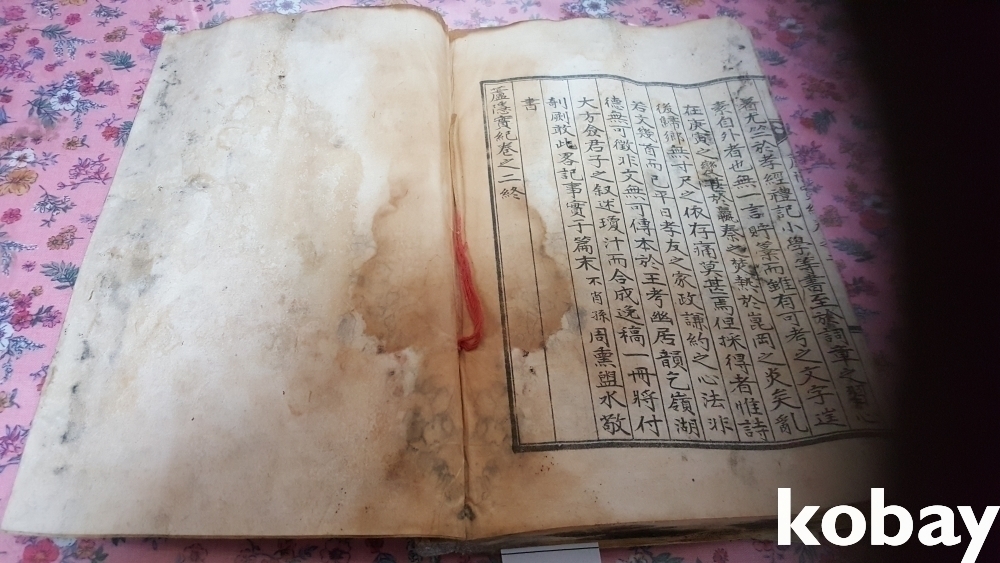 尤竺於孝經禮記小學等書至於詞章之
素自外者也無言時業而雖有可考之文字
在庚寅之變甚於嬴秦之焚熱於崑岡之炎矣亂
後歸鄉無寸尺之依存痛莫甚焉但採得者惟詩
若文幾首而已平日孝友之家政謙約之心法非
德無可徵非文無可傳本於王考幽居韻乞嶺湖
大方僉君子之叙述瓊汁而合成逸稿一冊將付
剞劂敢此畧記事實于篇末不肖孫周熏盥水敬
書
蘆隱實紀卷之二終
kobay